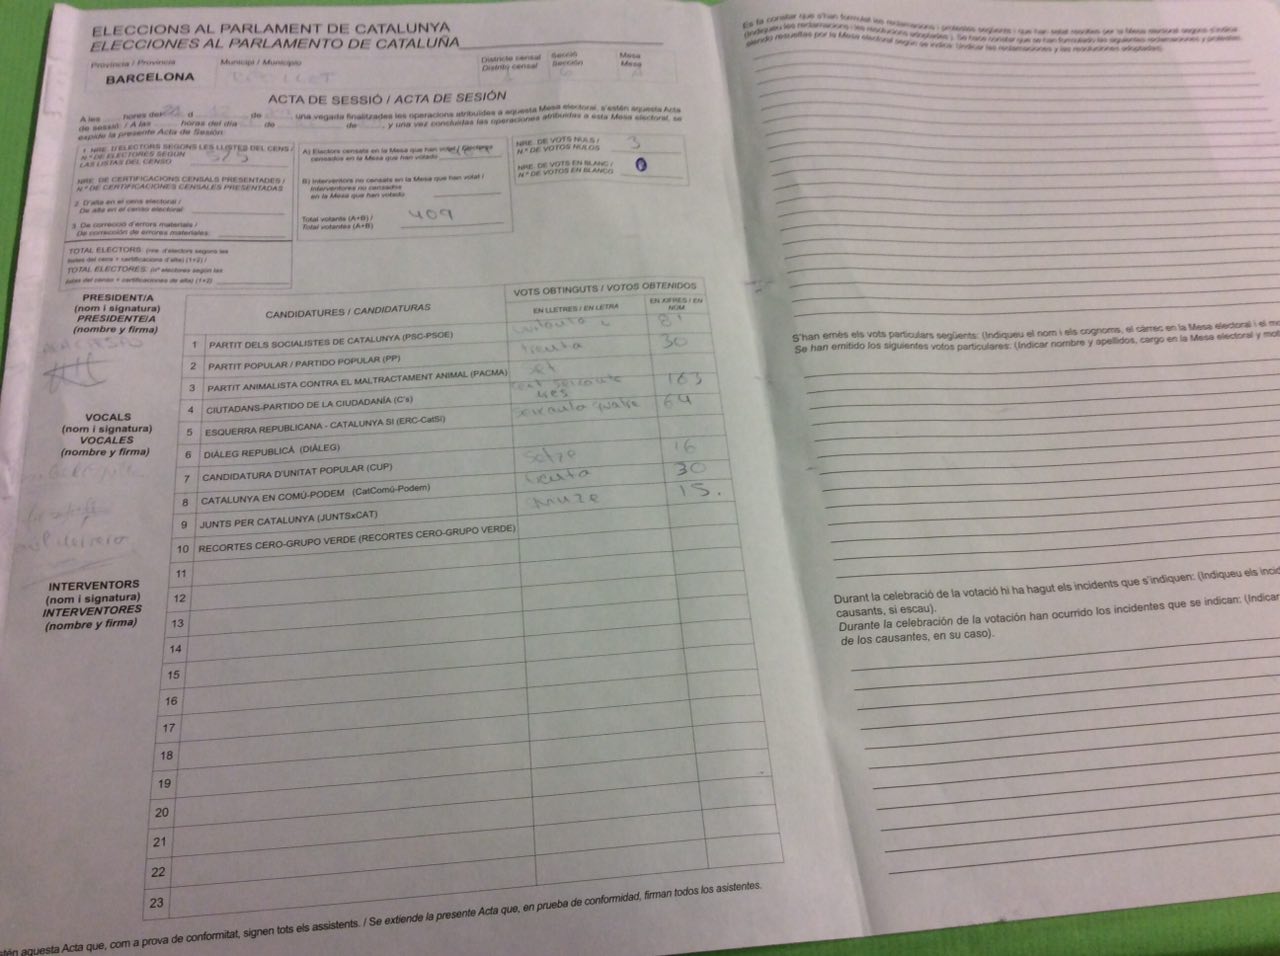 ELECCIONS AL PARLAMENT DE CATALUNYA
ELECCIONES AL PARLAMENTO DE CATALUÑA
Província / Provincia
Municipi / Municipio
Districte censal
Distrito censal
Secció
Sección
Mesa
Mesa
BARCELONA
ACTA DE SESSIÓ / ACTA DE SESIÓN
A les hores del d de una vegada finalitzades les operacions atribuïdes a aquesta Mesa electoral, s'estén aquesta Acta
de sessió / A las horas del día de de , y una vez concluidas las operaciones atribuidas a esta Mesa electoral, se
expide la presente Acta de Sesión:
1. NRE. D'ELECTORS SEGONS LES LLISTES DEL CENS /
N.º DE ELECTORES SEGÚN
LAS LISTAS DEL CENSO
NRE. DE CERTIFICACIONS CENSALS PRESENTADES /
N.º DE CERTIFICACIONES CENSALES PRESENTADAS
2. D'alta en el cens electoral /
De alta en el censo electoral:
3. De correcció d'errors materials /
De corrección de errores materiales:
TOTAL ELECTORS: (nre. d'electors segons les
llistes del cens + certificacions d'alta) (1+2) /
TOTAL ELECTORES: (nº electores según las
listas del censo + certificaciones de alta) (1+2)
A) Electors censats en la Mesa que han votat / Electores
censados en la Mesa que han votado
B) Interventors no censats en la Mesa que han votat /
Interventores no censados
en la Mesa que han votado
Total votants (A+B) /
Total votantes (A+B)
409
NRE. DE VOTS NULS /
N.º DE VOTOS NULOS
3
NRE. DE VOTS EN BLANC /
N.º DE VOTOS EN BLANCO
0
PRESIDENT/A
(nom i signatura)
PRESIDENTE/A
(nombre y firma)
VOCALS
(nom i signatura)
VOCALES
(nombre y firma)
INTERVENTORS
(nom i signatura)
INTERVENTORES
(nombre y firma)
CANDIDATURES / CANDIDATURAS
VOTS OBTINGUTS / VOTOS OBTENIDOS
EN LLETRES / EN LETRA
EN XIFRES / EN NÚM.
1 PARTIT DELS SOCIALISTES DE CATALUNYA (PSC-PSOE) 81
2 PARTIT POPULAR / PARTIDO POPULAR (PP) trenta 30
3 PARTIT ANIMALISTA CONTRA EL MALTRACTAMENT ANIMAL (PACMA) set
4 CIUTADANS-PARTIDO DE LA CIUDADANÍA (C's) tres 163
5 ESQUERRA REPUBLICANA - CATALUNYA SÍ (ERC-CatSí) 64
6 DIÀLEG REPUBLICÀ (DIÀLEG)
7 CANDIDATURA D'UNITAT POPULAR (CUP) setze 16
8 CATALUNYA EN COMÚ-PODEM (CatComú-Podem) trenta 30
9 JUNTS PER CATALUNYA (JUNTSxCAT) 15.
10 RECORTES CERO-GRUPO VERDE (RECORTES CERO-GRUPO VERDE)
11
12
13
14
15
16
17
18
19
20
21
22
23
aquesta Acta que, com a prova de conformitat, signen tots els assistents. / Se extiende la presente Acta que, en prueba de conformidad, firman todos los asistentes.
Es fa constar que s'han formulat les reclamacions i protestes següents i que han estat resoltes per la Mesa electoral segons s'indica
(Indiqueu les reclamacions i les resolucions adoptades). Se hace constar que se han formulado las siguientes reclamaciones y protestas,
siendo resueltas por la Mesa electoral según se indica: (Indicar las reclamaciones y las resoluciones adoptadas).
S'han emès els vots particulars següents: (Indiqueu el nom i els cognoms, el càrrec en la Mesa electoral i el
Se han emitido los siguientes votos particulares: (Indicar nombre y apellidos, cargo en la Mesa electoral y
Durant la celebració de la votació hi ha hagut els incidents que s'indiquen: (Indiqueu els
causants, si escau).
Durante la celebración de la votación han ocurrido los incidentes que se indican: (Indicar
de los causantes, en su caso).